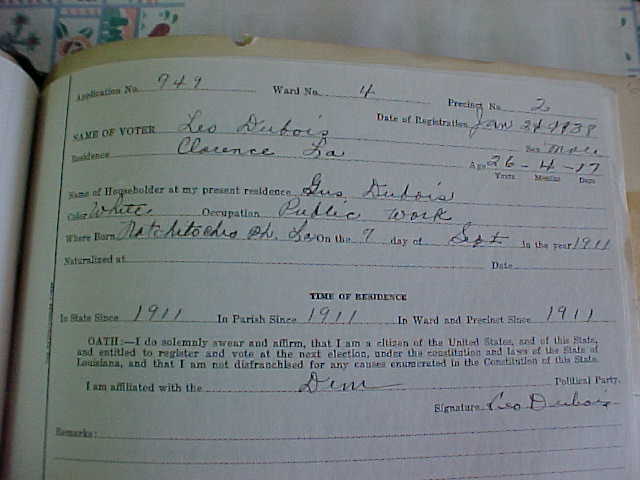 Application No. 949 Ward No. 4 Precinct No. 2
Date of Registration Jan 24 1938
NAME OF VOTER Leo Dubois Sex Male
Residence Clarence La Age 26-4-17
Years Months Days
Name of Householder at my present residence Gus Dubois
Color White Occupation Public Work
Where Born Natchitoches Ph. La On the 7 day of Sept in the year 1911
Naturalized at Date
TIME OF RESIDENCE
In State Since 1911 In Parish Since 1911 In Ward and Precinct Since 1911
OATH:—I do solemnly swear and affirm, that I am a citizen of the United States, and of this State,
and entitled to register and vote at the next election, under the constitution and laws of the State of
Louisiana, and that I am not disfranchised for any causes enumerated in the Constitution of this State.
I am affiliated with the Dem Political Party.
Signature Leo Dubois
Remarks: